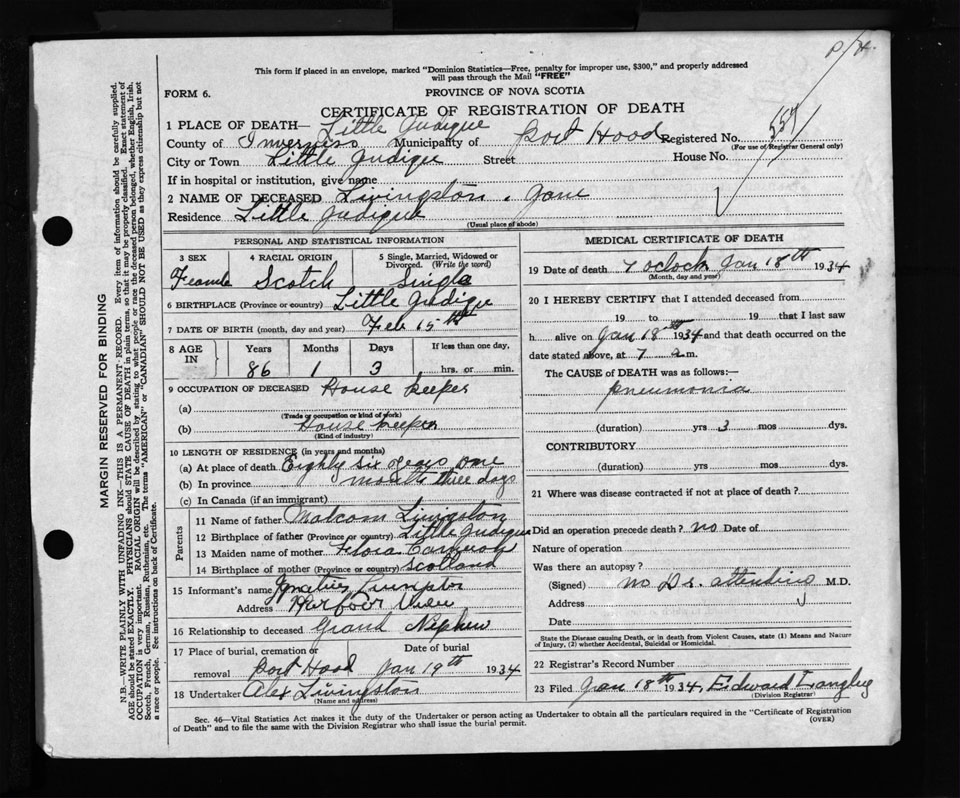 P/H.
This form if placed in an envelope, marked "Dominion Statistics—Free, penalty for improper use, $300," and properly addressed
will pass through the Mail "FREE"
FORM 6. PROVINCE OF NOVA SCOTIA
CERTIFICATE OF REGISTRATION OF DEATH
1 PLACE OF DEATH— Little Judique
County of Inverness Municipality of Port Hood Registered No. 557
(For use of Registrar General only)
City or Town Little Judique Street House No.
If in hospital or institution, give name
2 NAME OF DECEASED Livingston, Jane
Residence Little Judique
(Usual place of abode)
PERSONAL AND STATISTICAL INFORMATION
3 SEX 4 RACIAL ORIGIN 5 Single, Married, Widowed or Divorced. (Write the word)
Feamle Scotch Single
6 BIRTHPLACE (Province or country) Little Judique
7 DATE OF BIRTH (month, day and year) Feb 15th
8 AGE IN Years Months Days If less than one day,
86 1 3 hrs. or min.
9 OCCUPATION OF DECEASED House keeper
(a)
(Trade or occupation or kind of work)
(b) House keeper
(Kind of industry)
10 LENGTH OF RESIDENCE (in years and months)
(a) At place of death Eighty six years one
(b) In province month three days
(c) In Canada (if an immigrant)
Parents
11 Name of father Malcom Livingston
12 Birthplace of father (Province or country) Little Judique
13 Maiden name of mother Flora Cameron
14 Birthplace of mother (Province or country) Scotland
15 Informant's name Ignatius
Address Harbour View
16 Relationship to deceased Grand Nephew
17 Place of burial, cremation or removal Date of burial
Port Hood Jan 19th 1934
18 Undertaker Alex Livingston
(Name and address)
MEDICAL CERTIFICATE OF DEATH
19 Date of death 7 oclock Jan 18th 1934
(Month, day and year)
20 I HEREBY CERTIFY that I attended deceased from
19 to 19 that I last saw
h alive on Jan 18th 1934 and that death occurred on
date stated above, at 7 a.m.
The CAUSE of DEATH was as follows:—
pneumonia
(duration) yrs 3 mos dys.
CONTRIBUTORY
(duration) yrs. mos. dys.
21 Where was disease contracted if not at place of death?
Did an operation precede death? no Date of
Nature of operation
Was there an autopsy?
(Signed) no Dr. attending M.D.
Address
Date
State the Disease causing Death, or in death from Violent Causes, state (1) Means and Nature
of Injury, (2) whether Accidental, Suicidal or Homicidal.
22 Registrar's Record Number
23 Filed Jan 18th 1934, Edward Langley
(Division Registrar)
Sec. 46—Vital Statistics Act makes it the duty of the Undertaker or person acting as Undertaker to obtain all the particulars required in the "Certificate of Registration
of Death" and to file the same with the Division Registrar who shall issue the burial permit. (OVER)
MARGIN RESERVED FOR BINDING
N.B.—WRITE PLAINLY WITH UNFADING INK—THIS IS A PERMANENT RECORD. Every item of information should be carefully supplied.
AGE should be stated EXACTLY. PHYSICIANS should STATE CAUSE OF DEATH in plain terms, so that it may be properly classified. Exact statement of
OCCUPATION is very important. RACIAL ORIGIN will be described by stating to what people or race the deceased person belonged, whether English, Irish,
Scotch, French, German, Russian, Ruthenian, etc. The terms "AMERICAN" or "CANADIAN" SHOULD NOT BE USED as they express citizenship but not
a race or people. See instructions on back of Certificate.